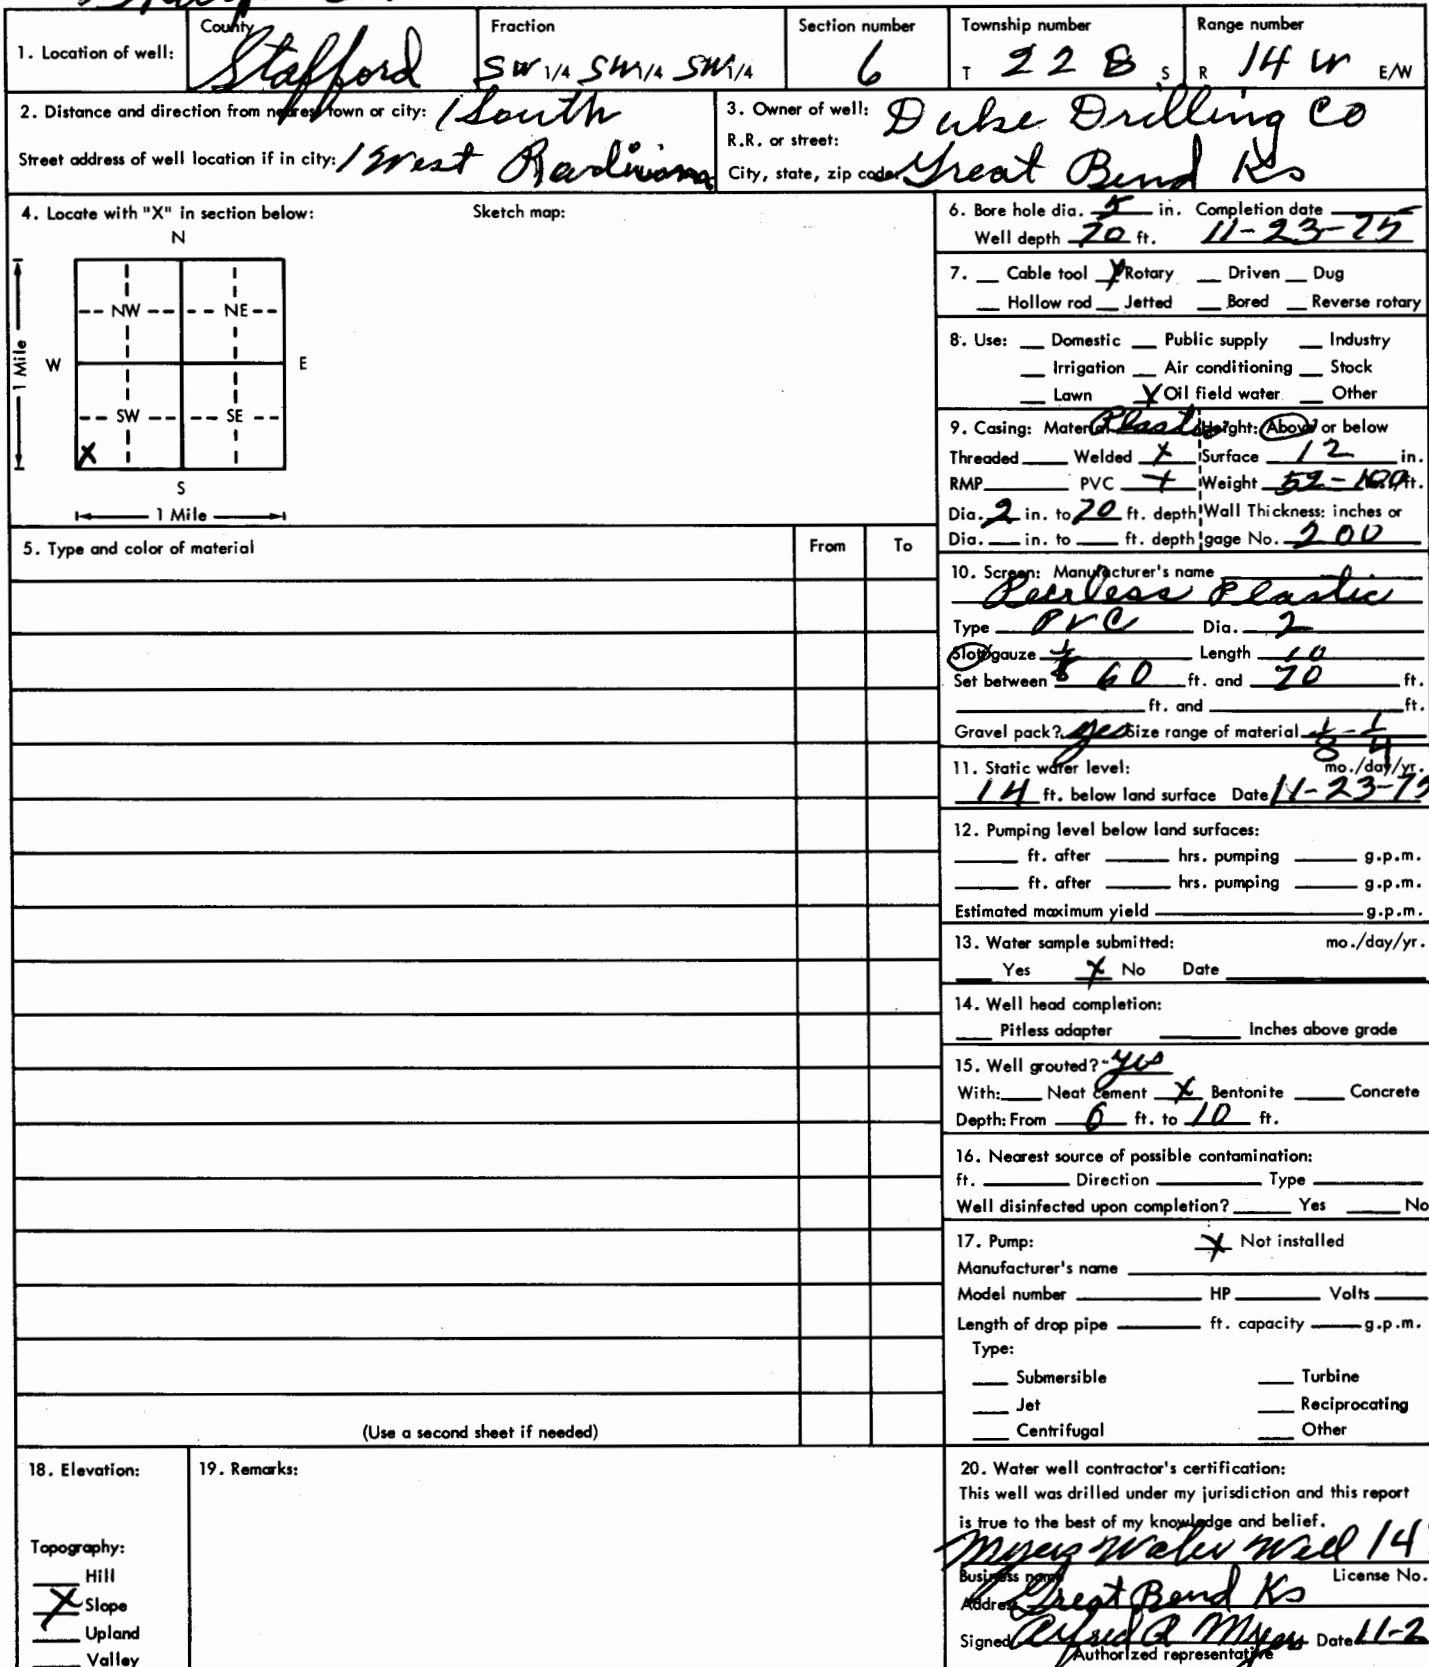 County Fraction Section number Township number Range number
1. Location of well: Stafford SW 1/4 SW 1/4 SW 1/4 6 T 22 S R 14 W E/W
2. Distance and direction from nearest town or city: 1 South
Street address of well location if in city: 1 West
3. Owner of well: Duke Drilling Co
R.R. or street:
City, state, zip code: Great Bend Ks
4. Locate with "X" in section below: Sketch map:
N
NW NE
W E
1 Mile
SW SE
X
S
1 Mile
5. Type and color of material From To
(Use a second sheet if needed)
6. Bore hole dia. 5 in. Completion date
Well depth 70 ft. 11-23-75
7. Cable tool X Rotary Driven Dug
Hollow rod Jetted Bored Reverse rotary
8. Use: Domestic Public supply Industry
Irrigation Air conditioning Stock
Lawn X Oil field water Other
9. Casing: Material Plastic Height: Above or below
Threaded Welded X Surface 12 in.
RMP PVC X Weight /ft.
Dia. 2 in. to 70 ft. depth Wall Thickness: inches or
Dia. in. to ft. depth gage No. 200
10. Screen: Manufacturer's name
Peerless Plastic
Type PVC Dia. 2
Slot/gauze 1/8 Length 10
Set between 60 ft. and 70 ft.
ft. and ft.
Gravel pack? yes Size range of material 1/8 - 1/4
11. Static water level: mo./day/yr.
14 ft. below land surface Date 11-23-75
12. Pumping level below land surfaces:
ft. after hrs. pumping g.p.m.
ft. after hrs. pumping g.p.m.
Estimated maximum yield g.p.m.
13. Water sample submitted: mo./day/yr.
Yes X No Date
14. Well head completion:
Pitless adapter Inches above grade
15. Well grouted? yes
With: Neat cement X Bentonite Concrete
Depth: From 0 ft. to 10 ft.
16. Nearest source of possible contamination:
ft. Direction Type
Well disinfected upon completion? Yes No
17. Pump: X Not installed
Manufacturer's name
Model number HP Volts
Length of drop pipe ft. capacity g.p.m.
Type:
Submersible Turbine
Jet Reciprocating
Centrifugal Other
18. Elevation:
Topography:
Hill
X Slope
Upland
Valley
19. Remarks:
20. Water well contractor's certification:
This well was drilled under my jurisdiction and this report
is true to the best of my knowledge and belief.
Myers Water Well 14
Business name License No.
Address Great Bend Ks
Signed Alfred A Myers Date 11-2
Authorized representative